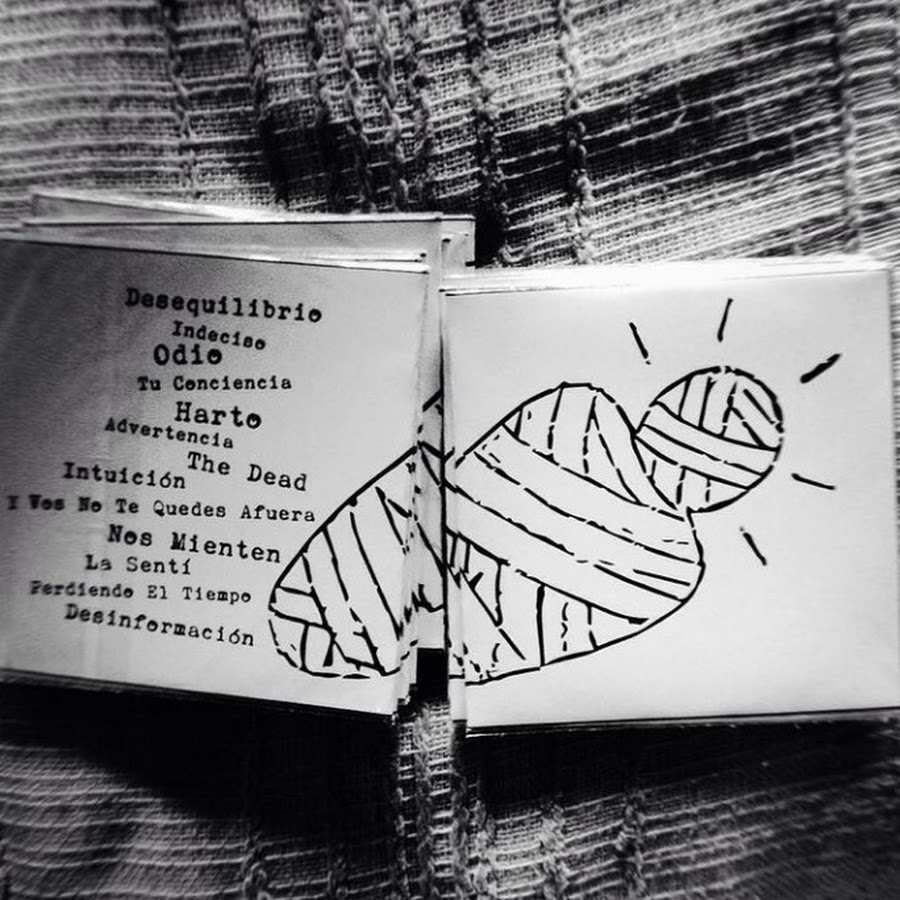 Desequilibrio
Indeciso
Odio
Tu Conciencia
Harto
Advertencia
The Dead
Intuición
Y Vos No Te Quedes Afuera
Nos Mienten
La Sentí
Perdiendo El Tiempo
Desinformación